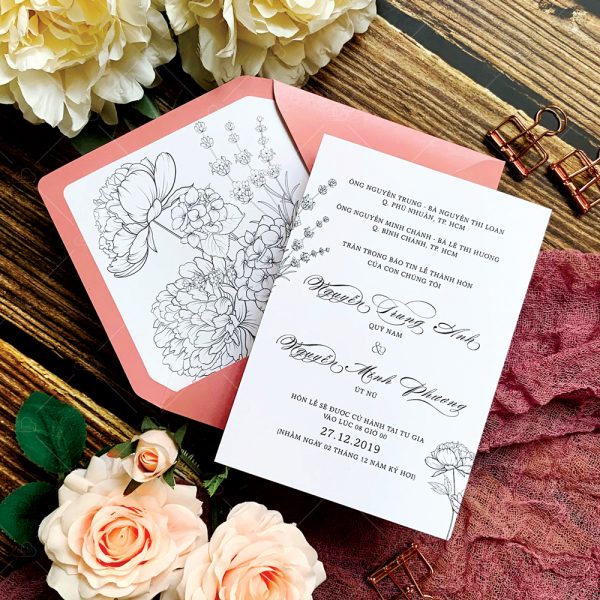 ÔNG NGUYỄN TRUNG - BÀ NGUYỄN THỊ LOAN
Q. PHÚ NHUẬN, TP. HCM
ÔNG NGUYỄN MINH CHÁNH - BÀ LÊ THỊ HƯƠNG
Q. BÌNH CHÁNH, TP. HCM
TRÂN TRỌNG BÁO TIN LỄ THÀNH HÔN
CỦA CON CHÚNG TÔI
Nguyễn Trung Anh
QUÝ NAM
&
Nguyễn Minh Phương
ÚT NỮ
HÔN LỄ SẼ ĐƯỢC CỬ HÀNH TẠI TƯ GIA
VÀO LÚC 08 GIỜ 00
27.12.2019
(NHẰM NGÀY 02 THÁNG 12 NĂM KỶ HỢI)